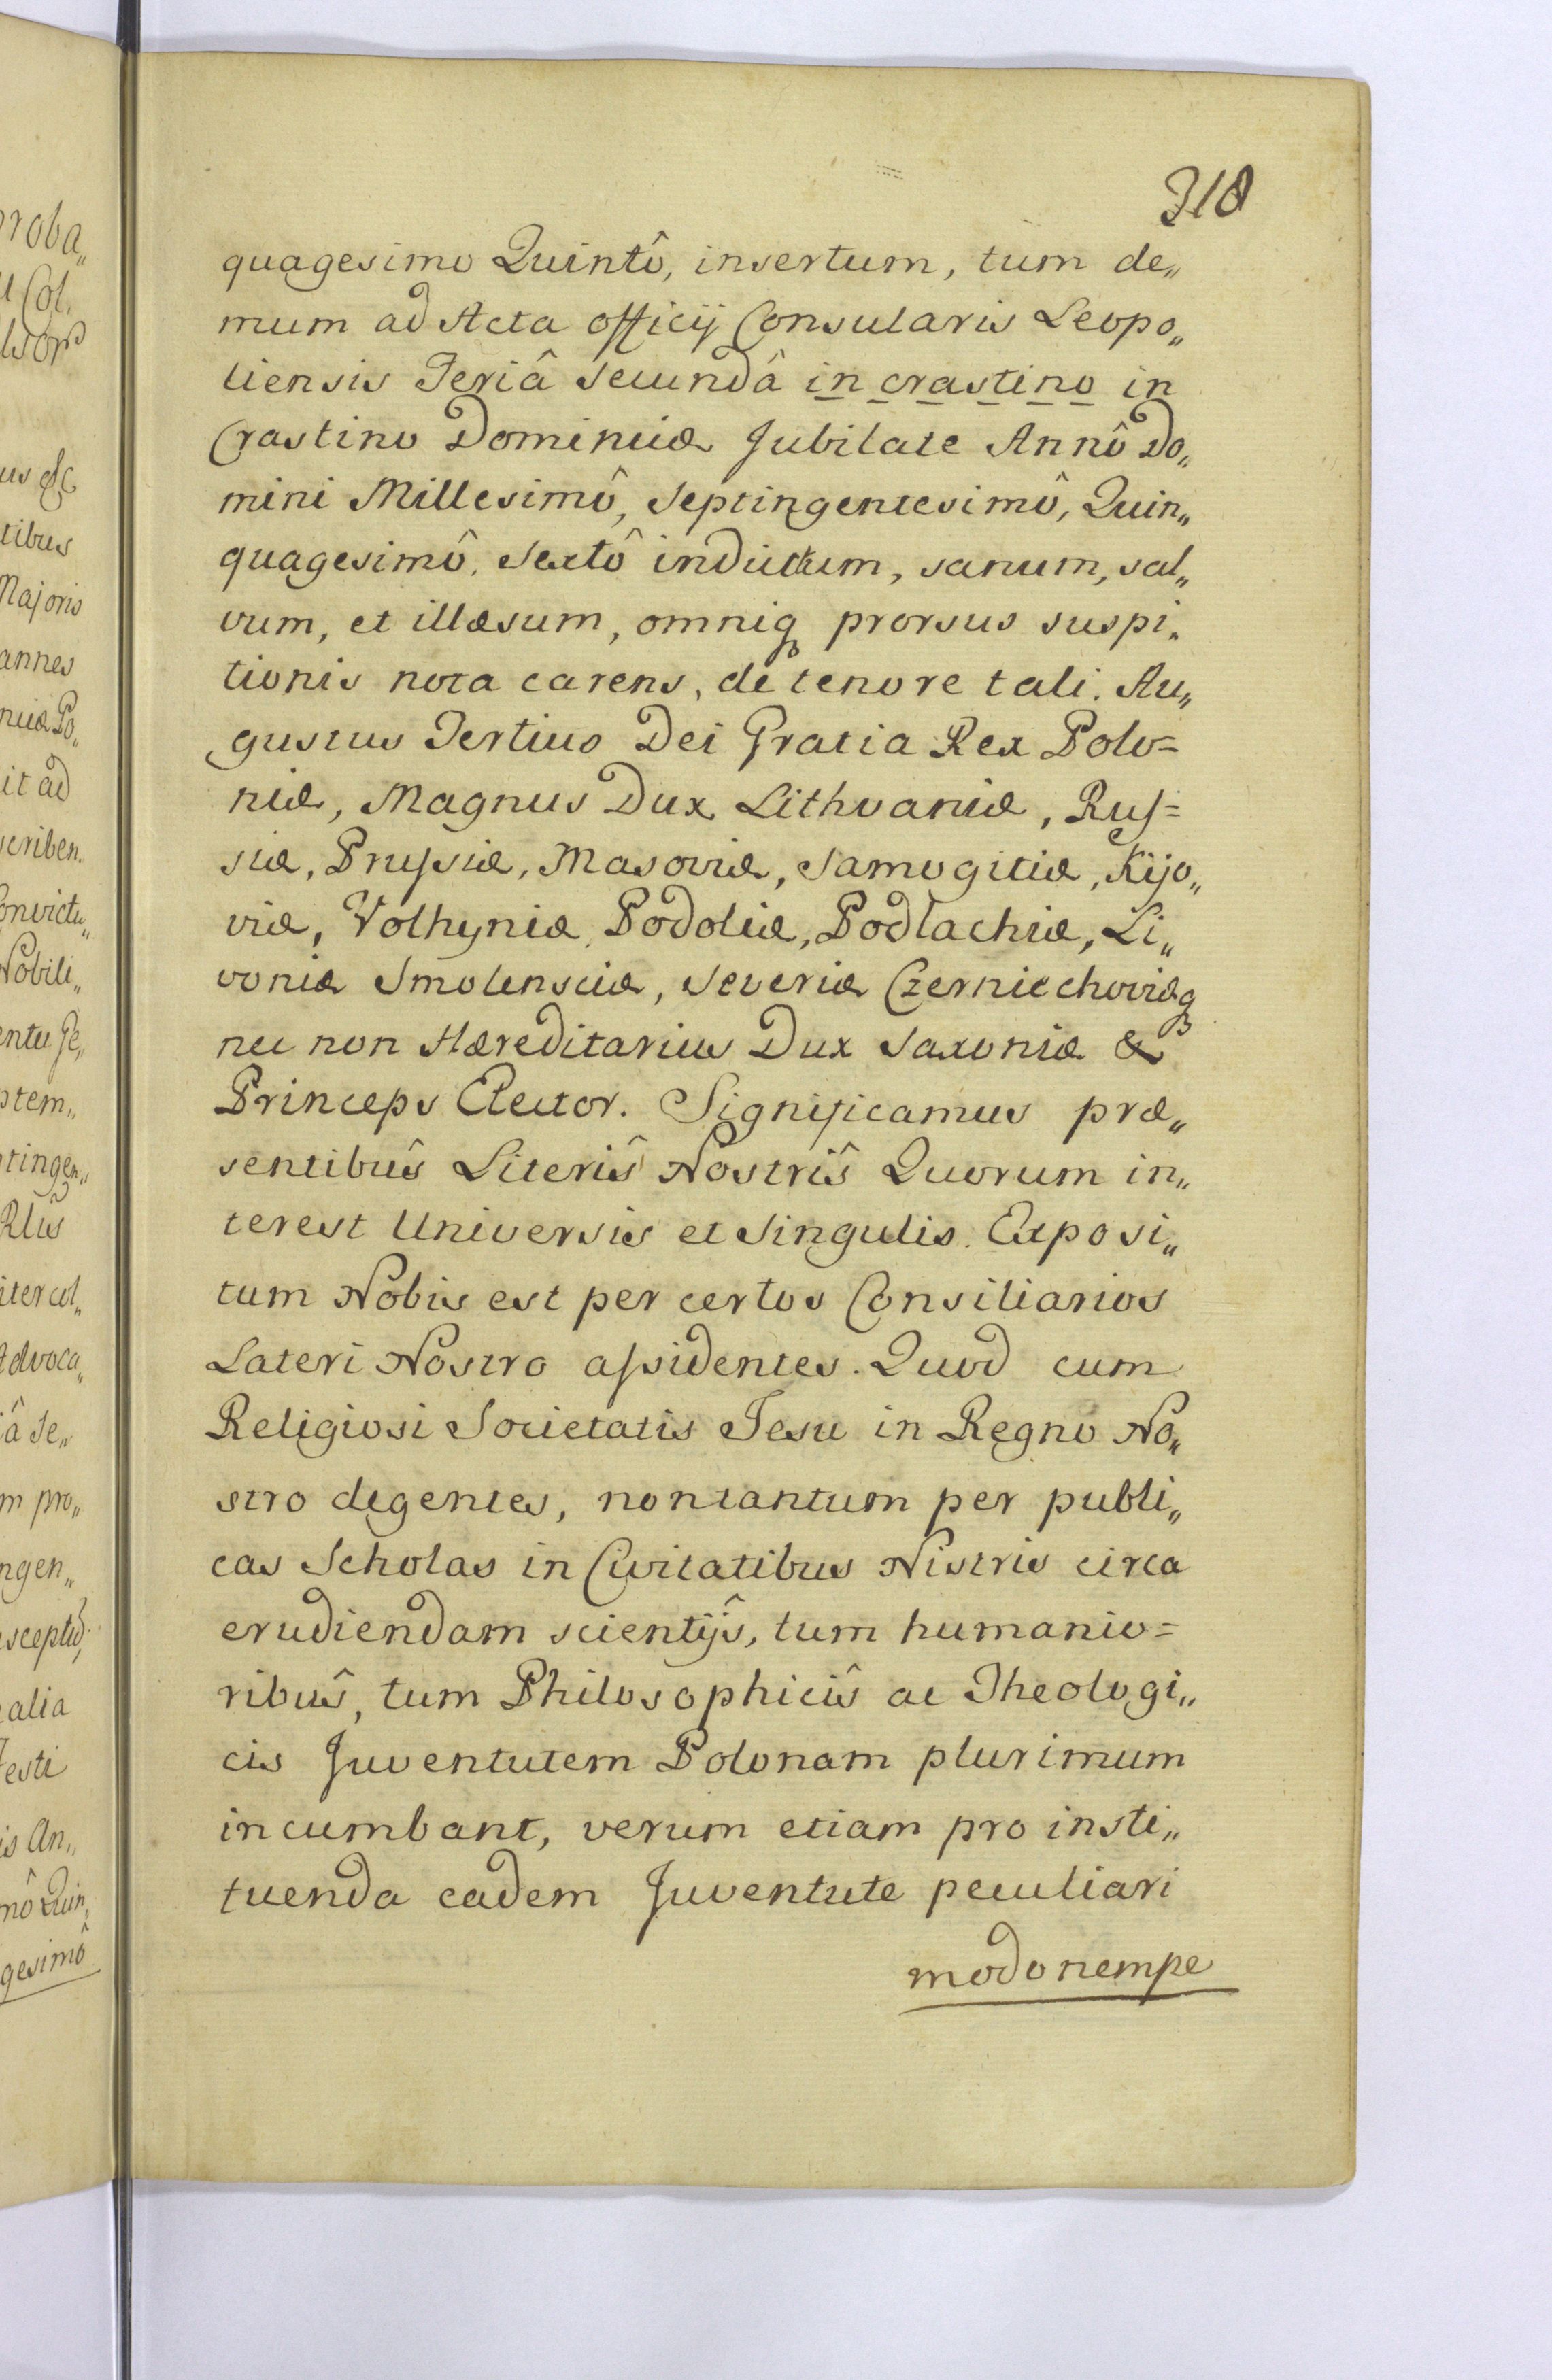 318
quagesimo Quintô, insertum, tum de„
mum ad Acta officij Consularis Leopo„
liensis Feriâ Secundâ in crastino in
Crastino Dominicæ Jubilate Annô Do„
mini Millesimô, Septingentesimô, Quin„
quagesimô. Sextô inductum, sanum, sal„
vum, et illæsum, omniq prorsus suspi„
tionis nota carens, de tenore tali. Au„
gustus Tertius Dei Gratia Rex Polo=
niæ, Magnus Dux Lithvaniæ, Rus=
siæ, Prussiæ, Masoviæ, Samogitiæ, Kijo„
viæ, Volhyniæ, Podoliæ, Podlachiæ, Li„
voniæ Smolensciæ, Severiæ Czerniechoviæq
nec non Hæreditarius Dux Saxoniæ &
Princeps Elector. Significamus præ„
sentibus̑ Literis̑ Nostris̑ Quorum in„
terest Universis et Singulis. Exposi„
tum Nobis est per certos Consiliarios
Lateri Nostro assidentes. Quod cum
Religiosi Societatis Jesu in Regno No„
stro degentes, nontantum per publi„
cas Scholas in Civitatibus Nistris circa
erudiendam scientijs̑, tum humanio=
ribus̑, tum Philosophicis̑ ac Theologi„
cis Juventutem Polonam plurimum
incumbant, verum etiam pro insti„
tuenda eadem Juventute peculiari
modo nempe